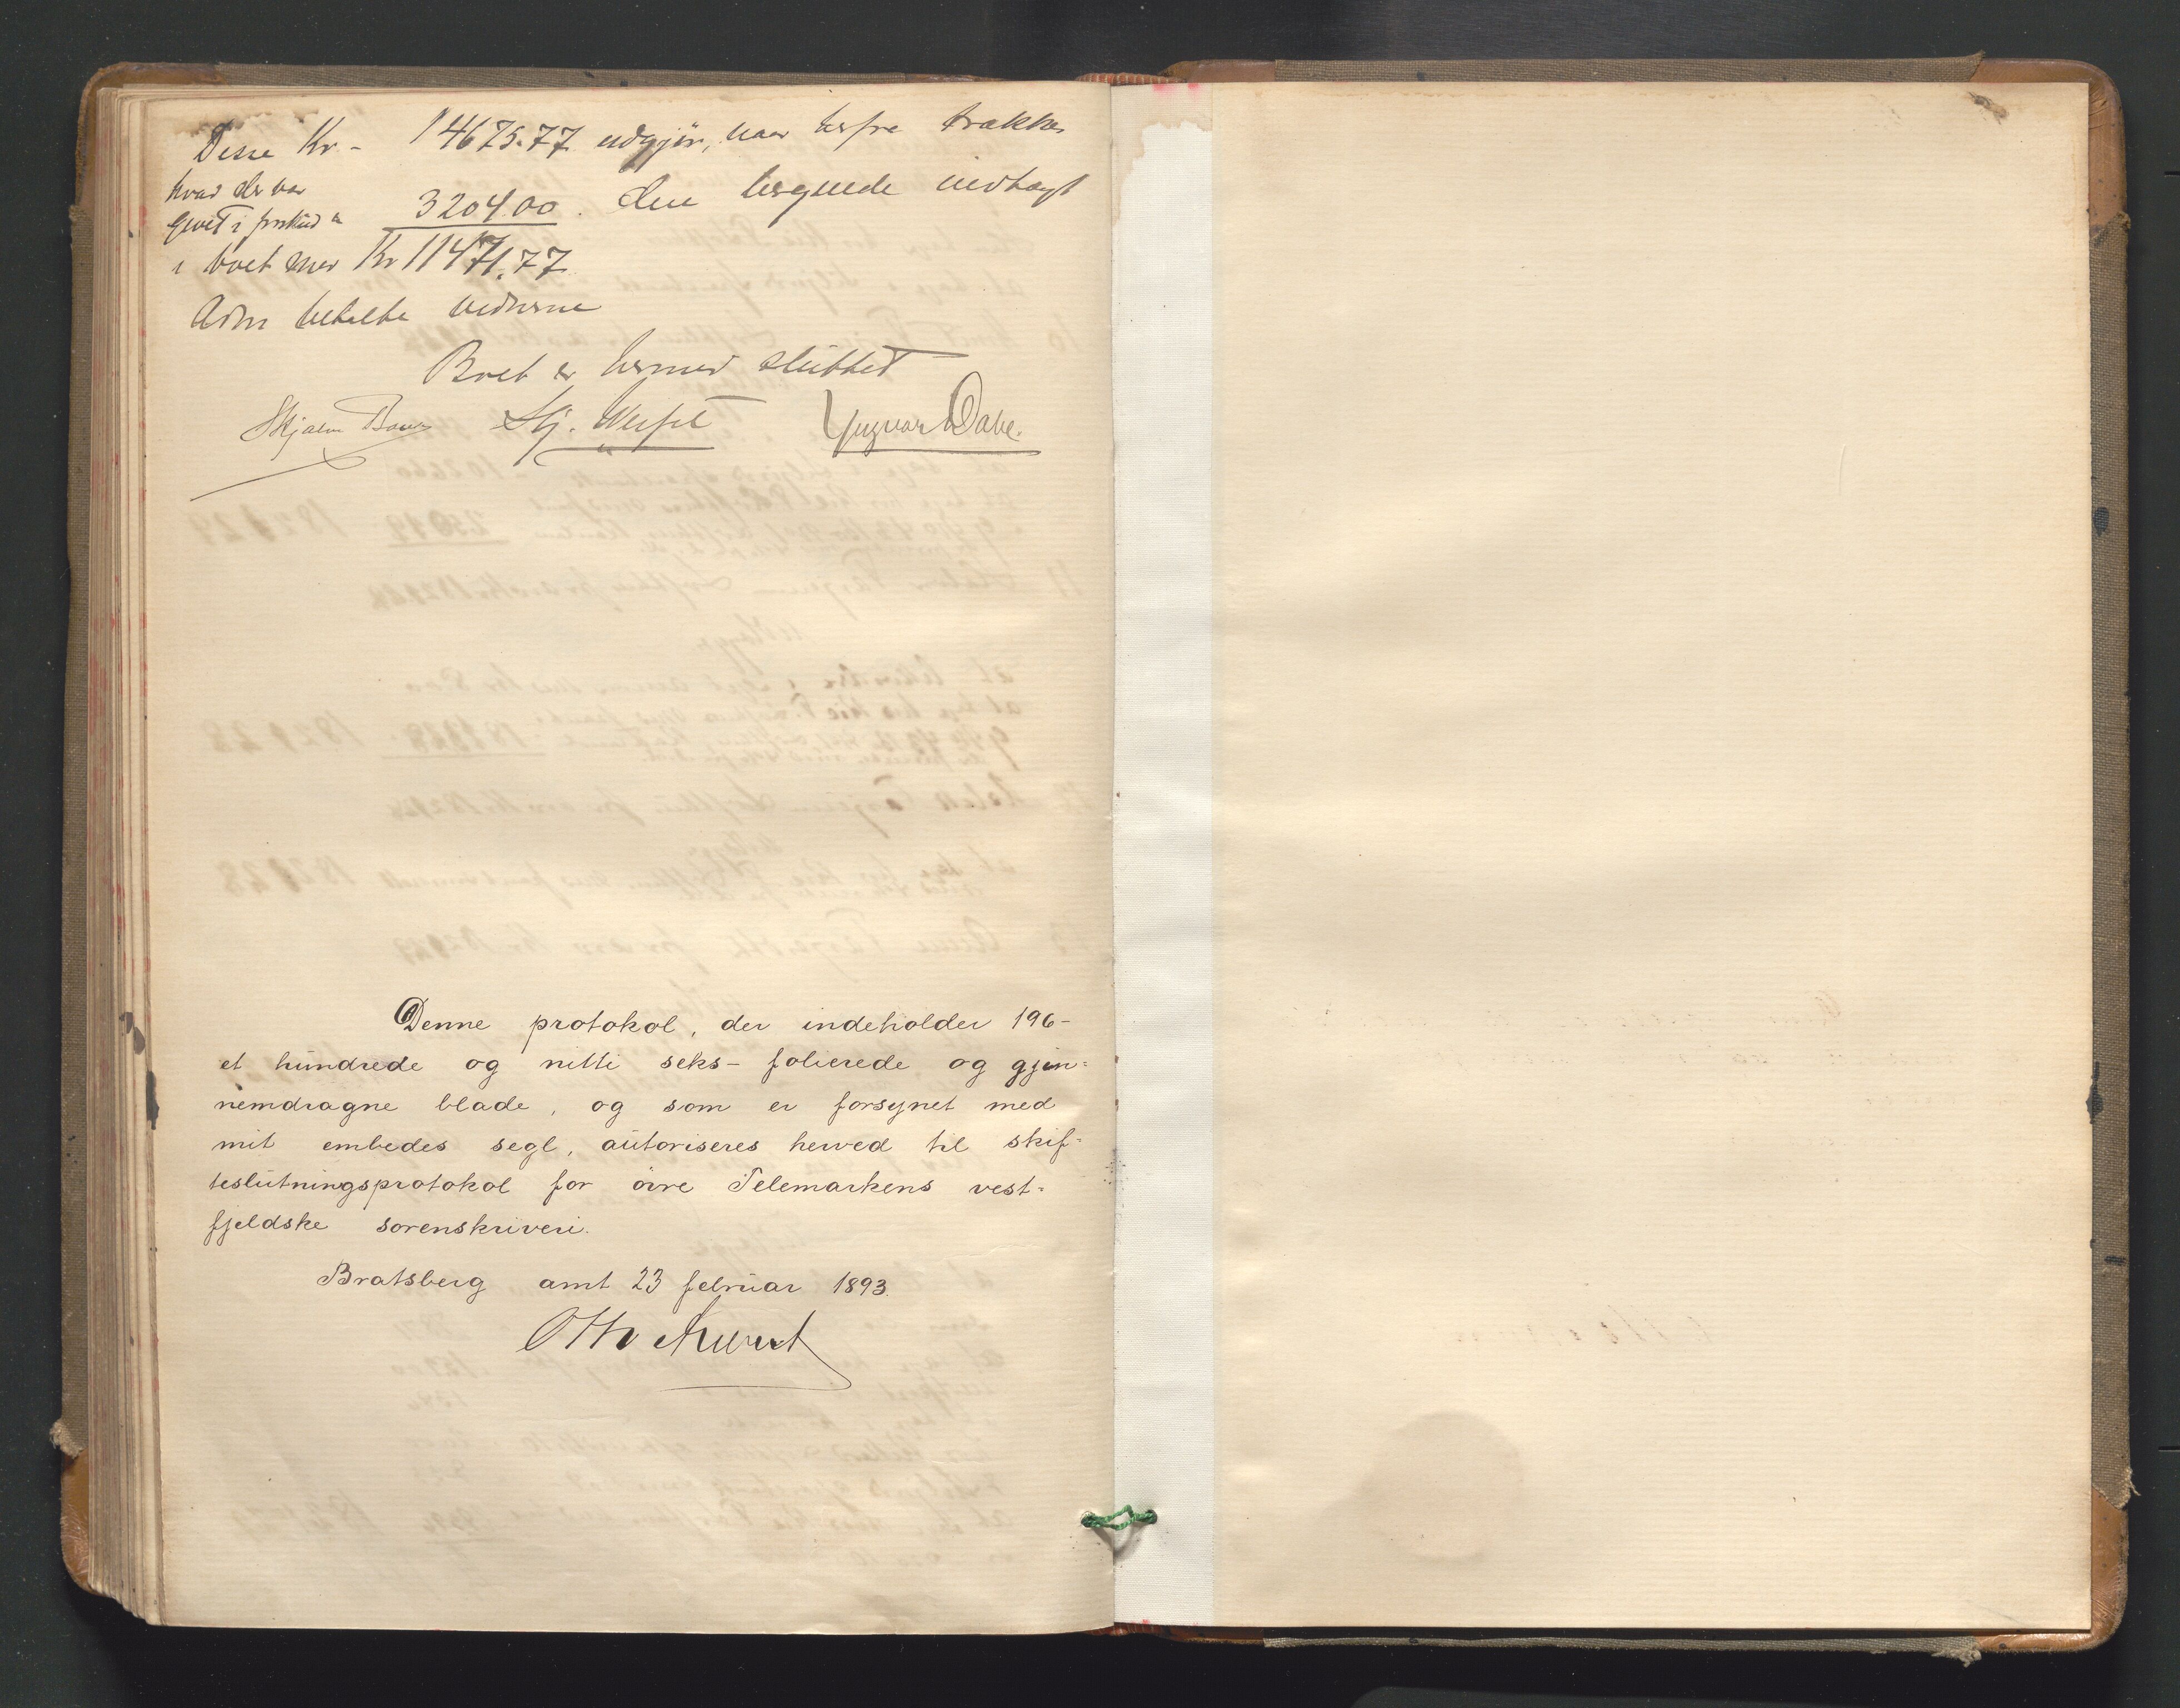 Disse Kr - 14675.77 udgjør, naar herfra trækkes
hvad der var
givet i forskud 3204.00. den beregnede indtægt
i boet med Kr 11471.77
Adm betalte vidnerne
Boet er hermed sluttet
Skjalm Bang Yngvar Dahl.
Denne protokol, der indeholder 196-
et hundrede og nitti seks- folierede og gjen-
nemdragne blade, og som er forsynet med
mit embedes segl, autoriseres herved til skif-
teslutningsprotokol for øvre Telemarkens vest-
fjeldske sorenskriveri.
Bratsberg amt 23 februar 1893.
Otto Aubert